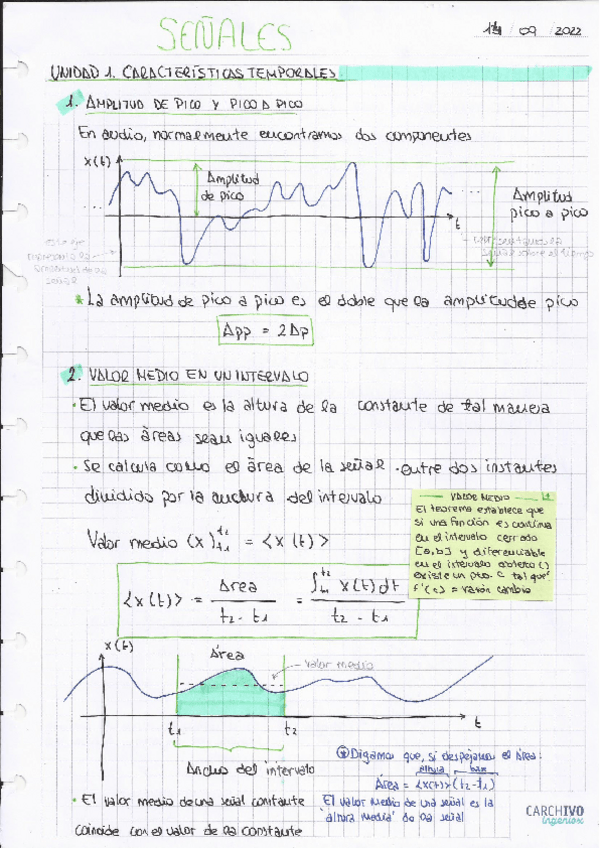 SEÑALES
14 / 09 / 2022
UNIDAD 1. CARACTERÍSTICAS TEMPORALES
1. AMPLITUD DE PICO Y PICO A PICO
En audio, normalmente encontramos dos componentes
x(t)
Amplitud
de pico
Amplitud
pico a pico
t
* La amplitud de pico a pico es el doble que la amplitud de pico
App = 2Ap
2. VALOR MEDIO EN UN INTERVALO
· El valor medio es la altura de la constante de tal manera
que las áreas sean iguales
· Se calcula como el área de la señal entre dos instantes
dividido por la anchura del intervalo
VALOR MEDIO
El teorema establece que
si una función es continua
en el intervalo cerrado
[a,b] y diferenciable
en el intervalo abierto ()
existe un pto. c tal que
f'(c) = razón cambio
Valor medio (x)_{t1}^{t2} = <x(t)>
<x(t)> = Área / (t2 - t1) = ∫_{t1}^{t2} x(t)dt / (t2 - t1)
x(t)
Área
valor medio
t1
t2
t
Ancho del intervalo
* Digamos que, si despejamos el área:
altura base
Área = <x(t)> (t2-t1)
· El valor medio de una señal constante
coincide con el valor de la constante
El valor medio de una señal es la
"altura media" de la señal
CARCHIVO
ingeniox